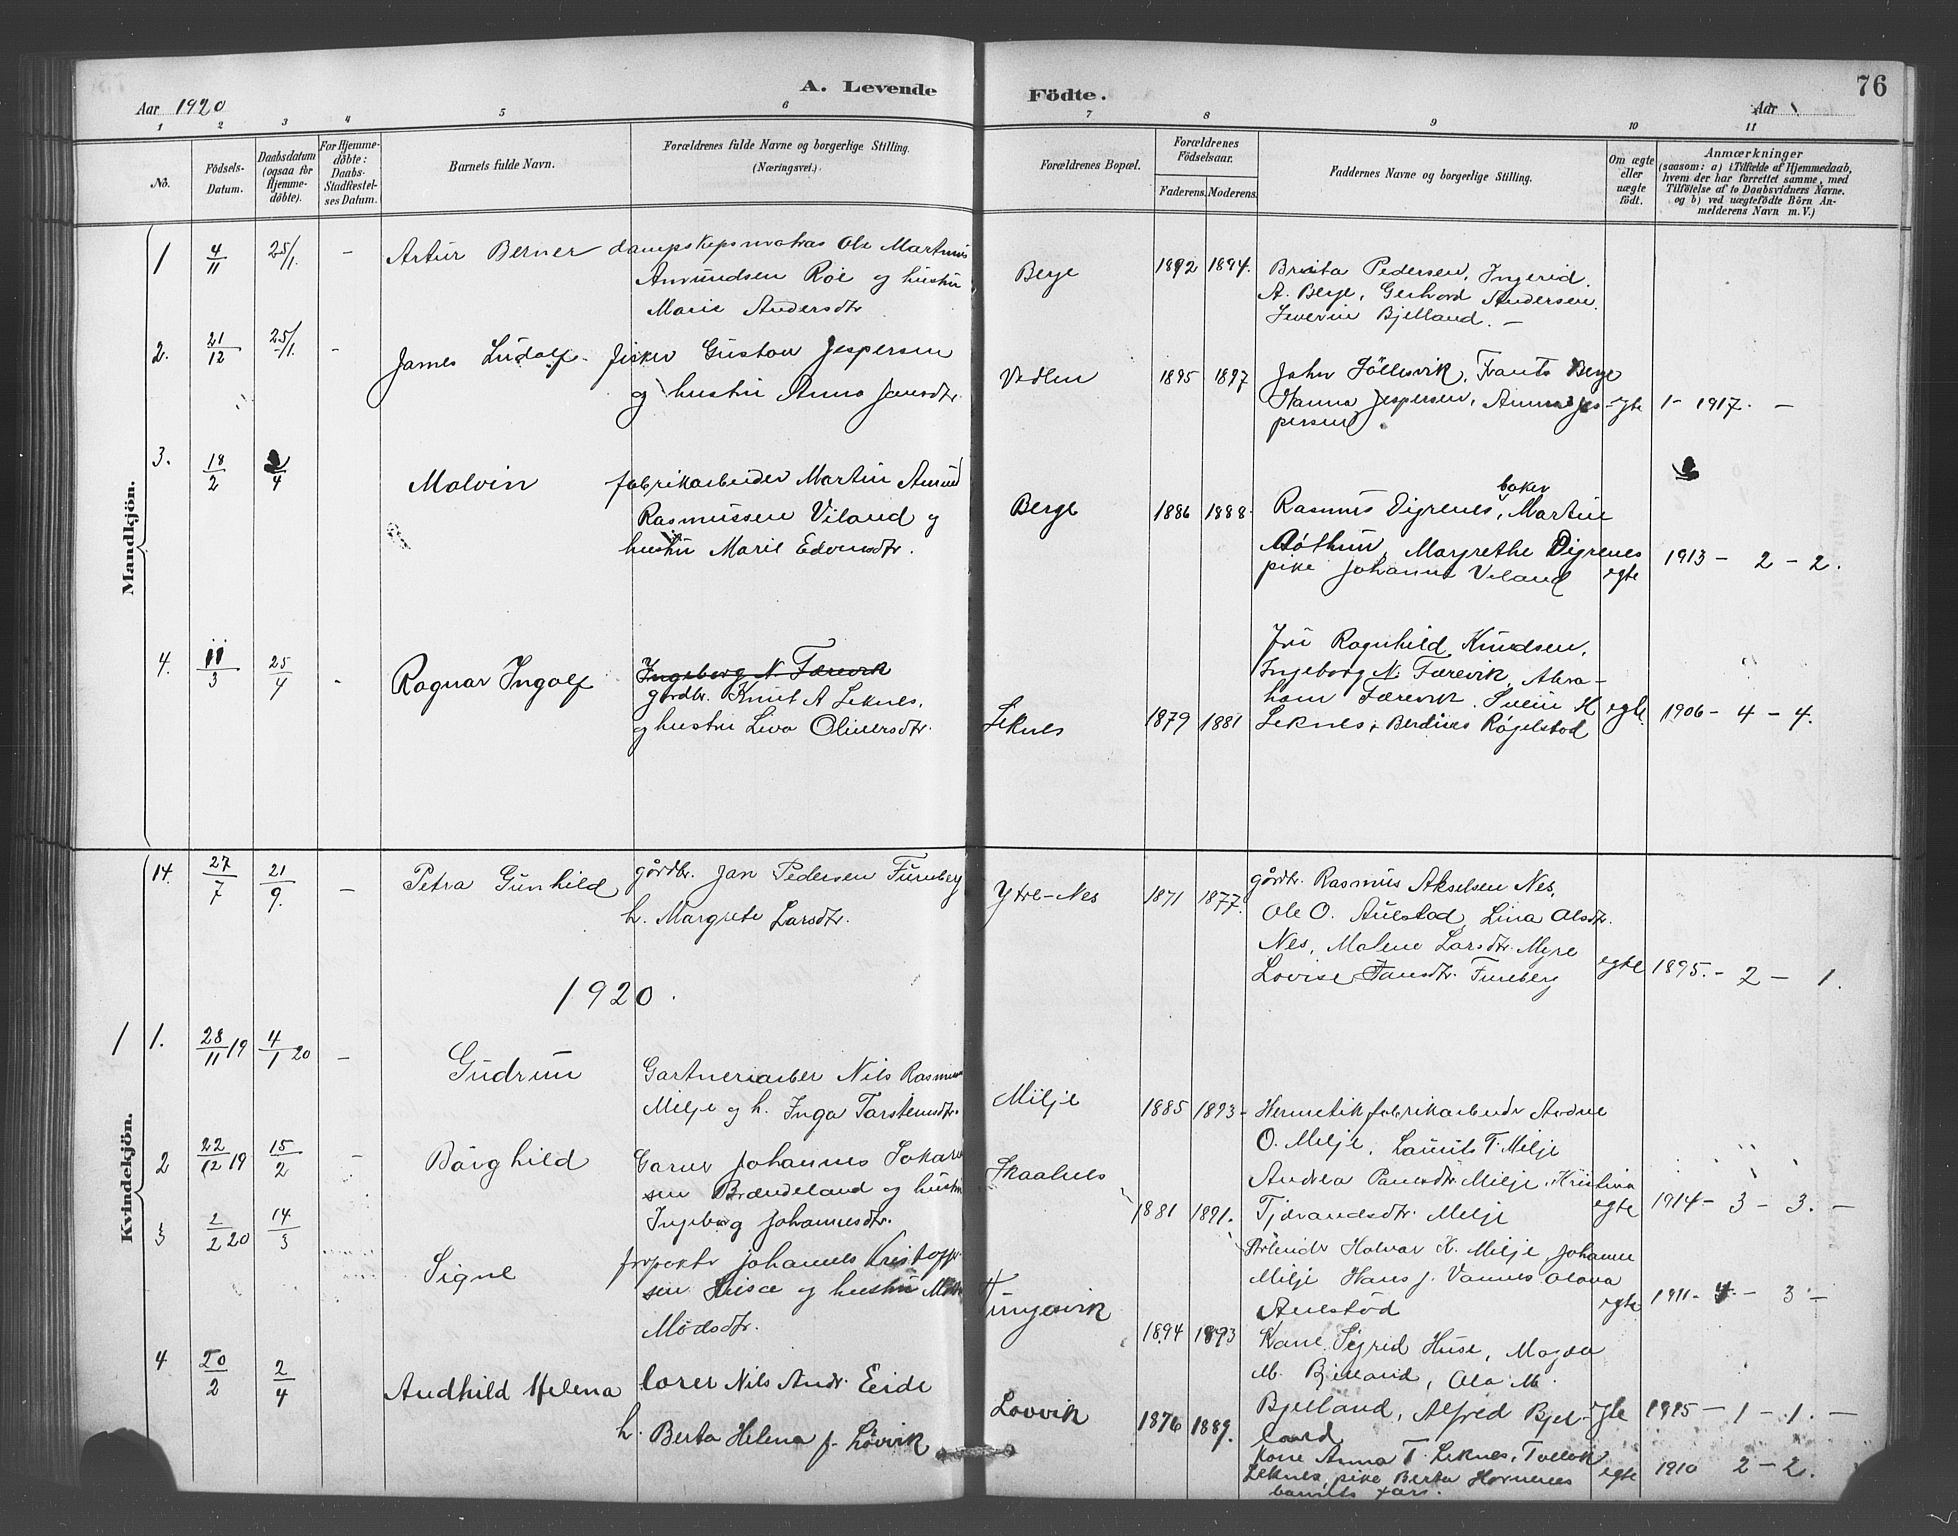 76
A. Levende Födte.
Aar 1920
Aar
1 2 3 4 5 6 7 8 9 10 11
No.
Födsels-Datum.
Daabsdatum (ogsaa for Hjemme-døbte).
For Hjemme-døbte: Daabs-Stadfæstel-ses Datum.
Barnets fulde Navn.
Forældrenes fulde Navne og borgerlige Stilling.
(Næringsvei.)
Forældrenes Bopæl.
Forældrenes Födselsaar.
Faderens. Moderens.
Faddernes Navne og borgerlige Stilling.
Om ægte eller uægte födt.
Anmærkninger
(saasom: a) i Tilfælde af Hjemmedaab,
hvem der har forrettet samme, med
Tilföielse af to Daabsvidners Navne.
og b) ved uægtefödte Börn An-
melderens Navn m. V.)
Mandkjön.
1 4/11 25/1. - Artur Berner dampskipsmatros Ole Martinus
Amundsen Roe og hustru
Marie Andersdtr
Berge 1892 1894. Brita Pedersen, Ingerid
A. Berge, Gerhard Andersen
Severin Bjelland. -
2. 21/12 25/1. - James Ludolf. fisker Gustav Jespersen
og hustru Anna Jansdtr.
Vedlen 1895 1897 John Föllesvik, Frants Berge
Hanna Jespersen, Anna Jes- egte 1 - 1917. -
persen.
3. 18/2 /4 Malvin fabrikarbeider Martin Amund
Rasmussen Viland og
hustru Marie Edvinsdtr.
Berge 1886 1888. Rasmus Digrenes, baker Martin
Aóthun, Margrethe Digrenes
pike Johanna Viland egte 1913 - 2 - 2.
4. 11/3 25/4 - Ragnar Ingolf Ingeborg N. Færevik
gårdbr. Knut A Leknes,
og hustru Liva Oliversdtr.
Leknes 1879 1881 Fru Ragnhild Knudsen,
Ingeborg N. Færevik, Abra-
ham Færevik. Svein K
Leknes, Berdines Røgelstad egte. 1906 - 4 - 4.
Kvindekjön.
14. 27/7 21/9. - Petra Gunhild gårdbr. Jan Pedersen Fureberg
h. Margrete Larsdtr.
Ytre-Nes 1871 1877. gårdbr. Rasmus Akselsen Nes,
Ole O. Aulestad, Lina Olsdtr.
Nes, Malene Larsdtr. Myre
Lovise Jansdtr. Fureberg egte 1895. - 2 - 1.
1920.
1 1. 28/11 19 4/1 20 - Gudrun Gartneriarber Nils Rasmus
Milje og h. Inga Tarsteinsdtr.
Milje 1885 1893 - Hermetikfabrikarbeider
O. Milje, Laurits T. Milje
2 22/12 19 15/2 - Borghild Garver Johannes
sen Brændeland og hustru
Ingeborg Johannesdtr.
Skaalnes 1881 1891. Andrea Milje, Kristina
Tjerandsdtr. Milje egte 1914 - 3 - 3. -
3 2/2 20 14/3 Signe forpakter Johannes Kristoffer
sen og hustru
Madsdtr.
Tungesvik 1894 1893 Arbeider Halvar K. Milje, Johanne
Milje Hans J. Vannes
Aulestad egte 1911 - 4 - 3 -
4 20/2 2/4 Audhild Helena lærer Nils Andr. Eide
h. Berta Helena f. Løvvik
Lovvik 1876 1889. Kone Sigrid Huse, Magda
M. Bjelland, Ola M.
Bjelland, Alfred Bjel-
land egte 1915 - 1 - 1. -
Kone Anna T. Leknes, Tollek
Leknes, pike Berta Hovnenes egte 1910 2 - 2.
barnets fars.